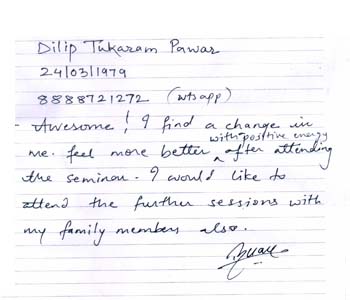 Dilip Tukaram Pawar
24/03/1979
8888721272 (wtsapp)
- Awesome! I find a change in
with positive energy
me. feel more better ^ after attending
the seminar. I would like to
attend the further sessions with
my family members also.